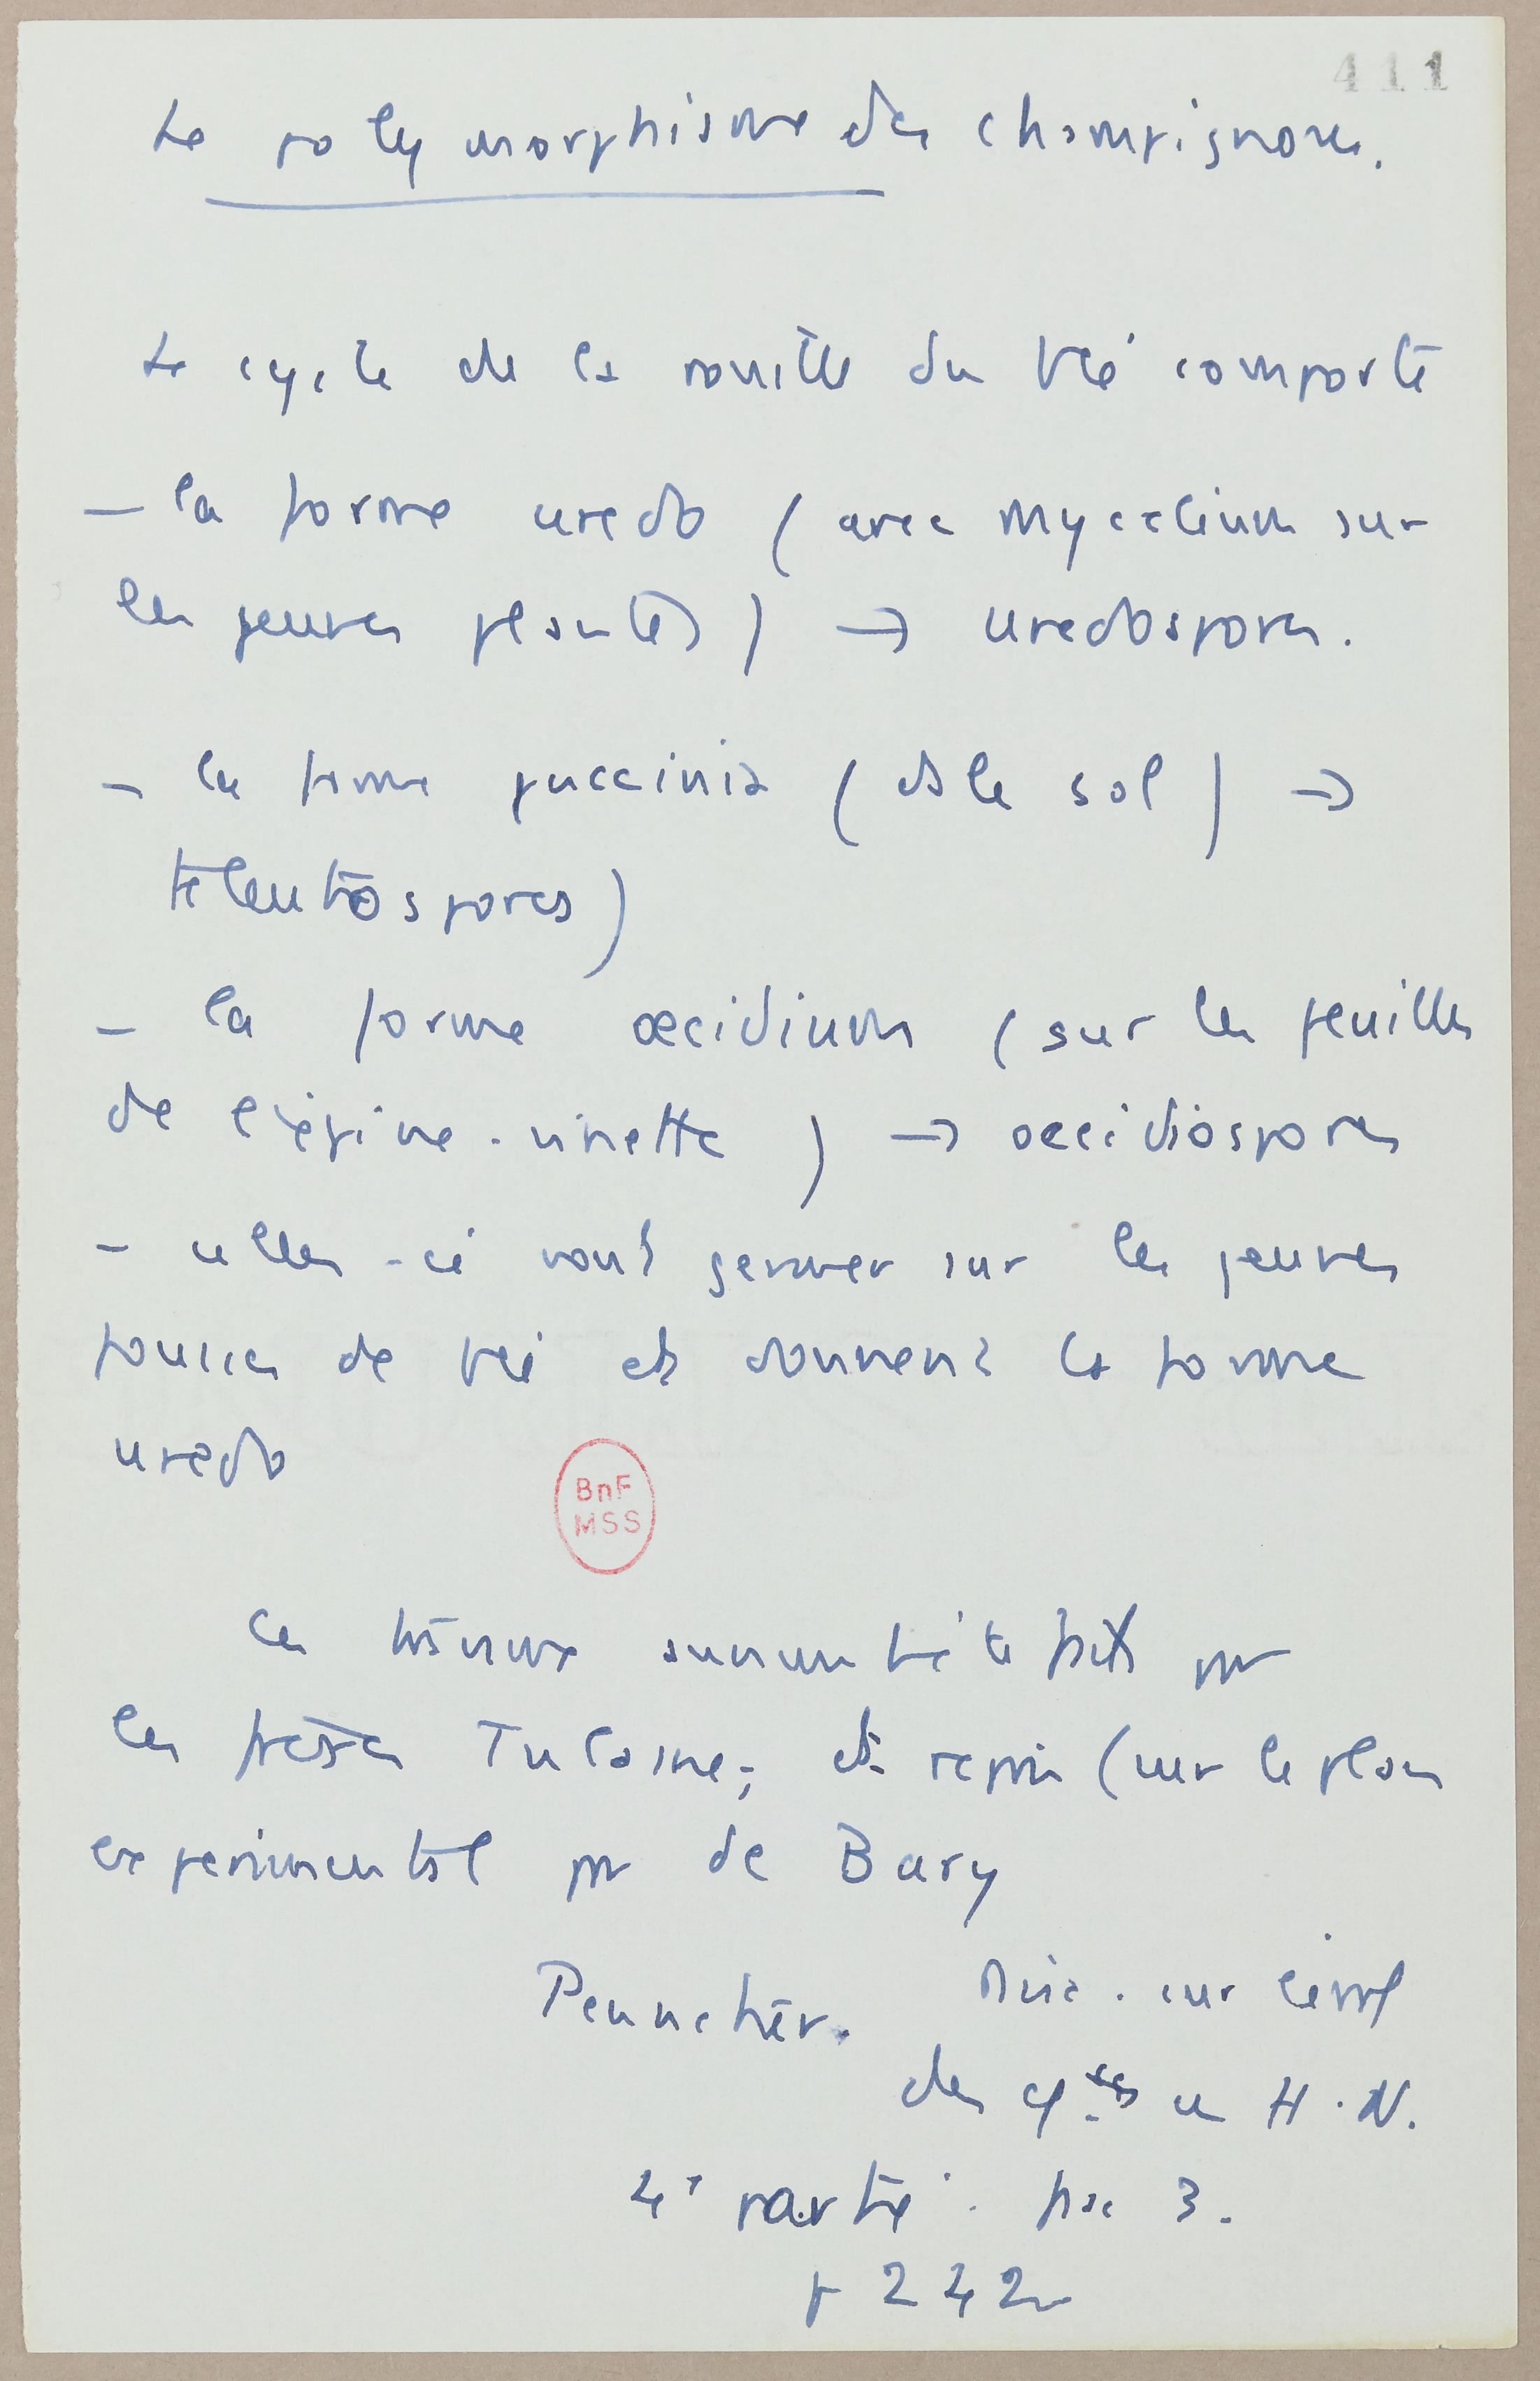 411
Le polymorphisme des champignons.
Le cycle de la rouille du blé comporte
- la forme uredo (avec mycelium sur
les jeunes plantes) → uredospores.
- la forme puccinia (ds le sol) →
teleutospores)
- la forme œcidium (sur les feuilles
de l'épine-vinette) → œcidiospores
- celles-ci vont germer sur les jeunes
pousses de blé et donnent la forme
uredo
BnF
MSS
Ces travaux ont été faits par
les frères Tulasne; et repris (sur le plan
experimental par de Bary
Pennetier. Disc. sur l'évol
des csces en H.N.
4e partie. fasc 3.
p 242